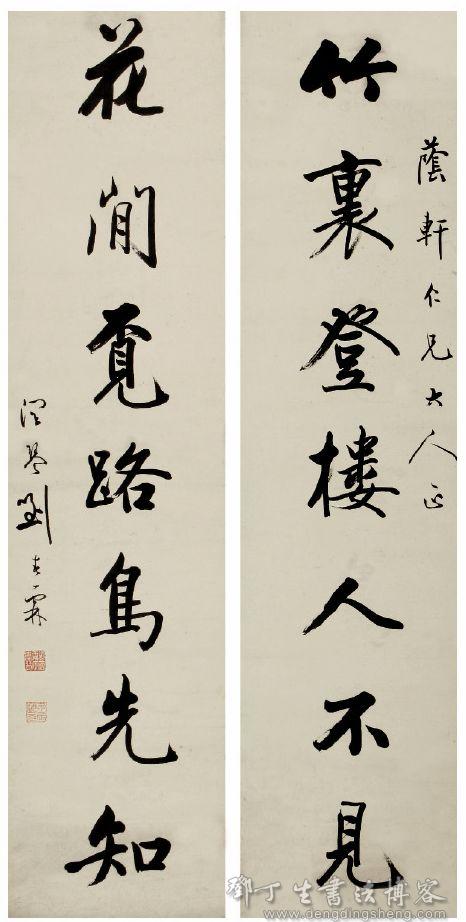 蔭軒仁兄大人正
竹裏登樓人不見
花閒覔路鳥先知
潤琴劉春霖
鄧丁生書法博客
www.dengdingsheng.com